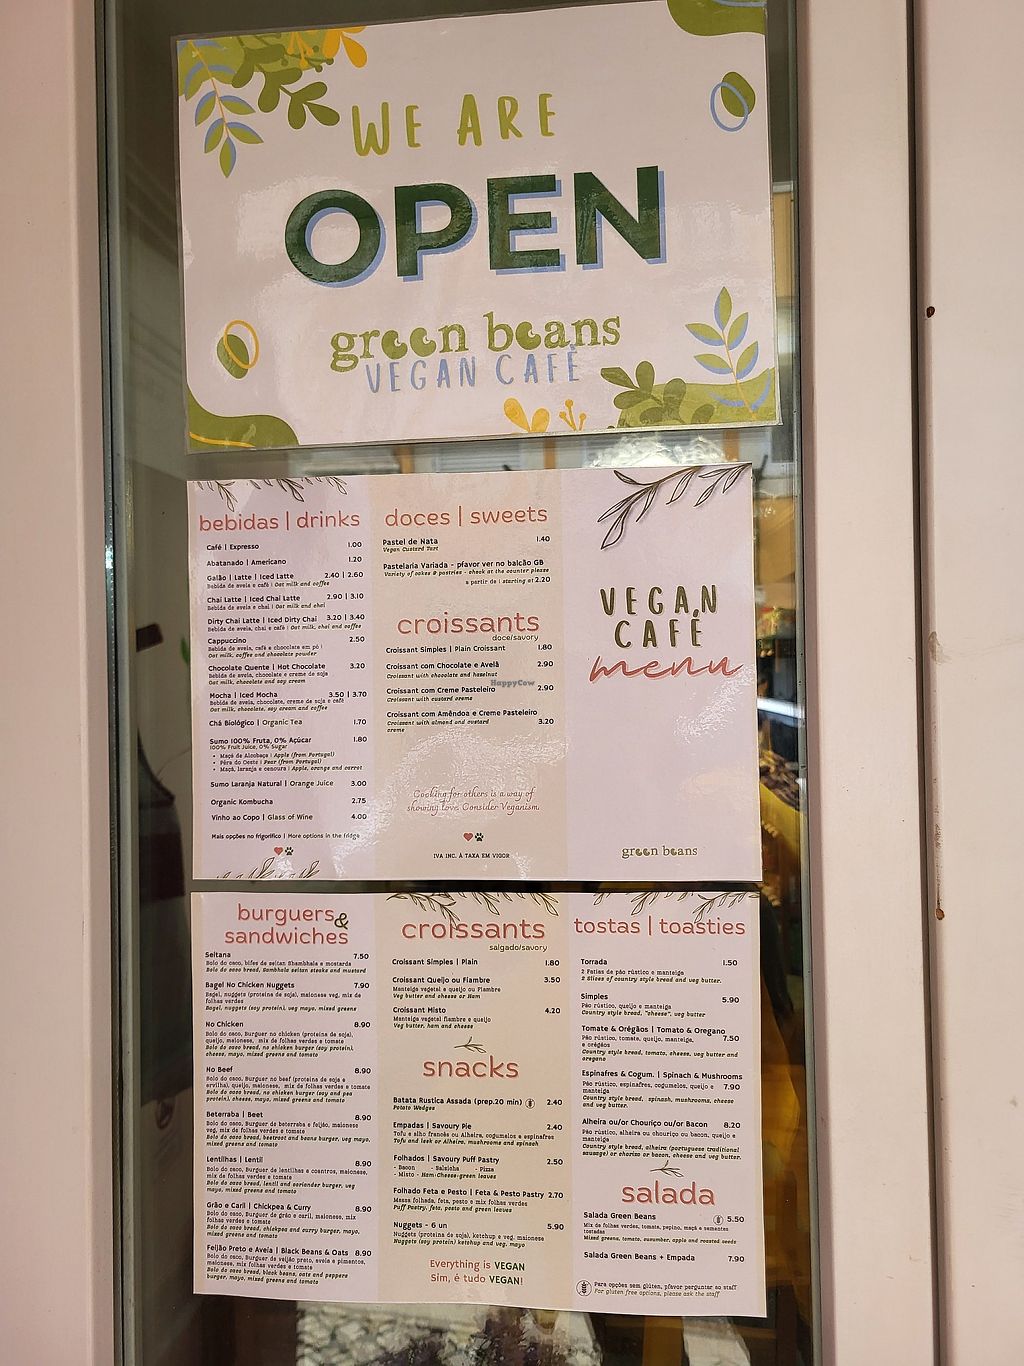 WE ARE
OPEN
green beans
VEGAN CAFÉ
bebidas | drinks
Café | Expresso 1.00
Abatanado | Americano 1.20
Galão | Latte | Iced Latte 2.40 | 2.60
Bebida de aveia e café | Oat milk and coffee
Chai Latte | Iced Chai Latte 2.90 | 3.10
Bebida de aveia e chai | Oat milk and chai
Dirty Chai Latte | Iced Dirty Chai 3.20 | 3.40
Bebida de aveia, chai e café | Oat milk, chai and coffee
Cappuccino 2.50
Bebida de aveia, café e chocolate em pó |
Oat milk, coffee and chocolate powder
Chocolate Quente | Hot Chocolate 3.20
Bebida de aveia, chocolate e creme de soja
Oat milk, chocolate and soy cream
Mocha | Iced Mocha 3.50 | 3.70
Bebida de aveia, chocolate, creme de soja e café
Oat milk, chocolate, soy cream and coffee
Chá Biológico | Organic Tea 1.70
Sumo 100% Fruta, 0% Açúcar 1.80
100% Fruit Juice, 0% Sugar
• Maçã de Alcobaça | Apple (from Portugal)
• Pêra do Oeste | Pear (from Portugal)
• Maçã, laranja e cenoura | Apple, orange and carrot
Sumo Laranja Natural | Orange Juice 3.00
Organic Kombucha 2.75
Vinho ao Copo | Glass of Wine 4.00
Mais opções no frigorífico | More options in the fridge
doces | sweets
Pastel de Nata 1.40
Vegan Custard Tart
Pastelaria Variada - pfavor ver no balcão GB
Variety of cakes & pastries - check at the counter please
a partir de | starting at 2.20
croissants
doce/savory
Croissant Simples | Plain Croissant 1.80
Croissant com Chocolate e Avelã 2.90
Croissant with chocolate and hazelnut
HappyCow
Croissant com Creme Pasteleiro 2.90
Croissant with custard creme
Croissant com Amêndoa e Creme Pasteleiro
Croissant with almond and custard 3.20
creme
Cooking for others is a way of
showing love. Consider Veganism.
IVA INC. À TAXA EM VIGOR
VEGAN
CAFÉ
menu
green beans
burguers &
sandwiches
Seitana 7.50
Bolo do caco, bifes de seitan Shambhala e mostarda
Bolo do caco bread, Sambhala seitan steaks and mustard
Bagel No Chicken Nuggets 7.90
Bagel, nuggets (proteína de soja), maionese veg, mix de
folhas verdes
Bagel, nuggets (soy protein), veg mayo, mixed greens
No Chicken 8.90
Bolo do caco, Burguer no chicken (proteína de soja),
queijo, maionese, mix de folhas verdes e tomate
Bolo do caco bread, no chicken burger (soy protein),
cheese, mayo, mixed greens and tomato
No Beef 8.90
Bolo do caco, Burguer no beef (proteína de soja e
ervilha), queijo, maionese, mix de folhas verdes e tomate
Bolo do caco bread, no chicken burger (soy and pea
protein), cheese, mayo, mixed greens and tomato
Beterraba | Beet 8.90
Bolo do caco, Burguer de beterraba e feijão, maionese
veg, mix de folhas verdes e tomate
Bolo do caco bread, beetroot and beans burger, veg mayo,
mixed greens and tomato
Lentilhas | Lentil 8.90
Bolo do caco, Burguer de lentilhas e coentros, maionese,
mix de folhas verdes e tomate
Bolo do caco bread, lentil and coriander burger, veg
mayo, mixed greens and tomato
Grão e Caril | Chickpea & Curry 8.90
Bolo do caco, Burguer de grão e caril, maionese, mix
folhas verdes e tomate
Bolo do caco bread, chickpea and curry burger, mayo,
mixed greens and tomato
Feijão Preto e Aveia | Black Beans & Oats 8.90
Bolo do caco, Burguer de feijão preto, aveia e pimentos,
maionese, mix folhas verdes e tomate
Bolo do caco bread, black beans, oats and peppers
burger, mayo, mixed greens and tomato
croissants
salgado/savory
Croissant Simples | Plain 1.80
Croissant Queijo ou Fiambre 3.50
Manteiga vegetal e queijo ou Fiambre
Veg butter and cheese or Ham
Croissant Misto 4.20
Manteiga vegetal fiambre e queijo
Veg butter, ham and cheese
snacks
Batata Rustica Assada (prep.20 min) 2.40
Potato Wedges
Empadas | Savoury Pie 2.40
Tofu e alho francês ou Alheira, cogumelos e espinafres
Tofu and leek or Alheira, mushroom and spinach
Folhados | Savoury Puff Pastry 2.50
- Bacon - Salsicha - Pizza
- Misto - Ham-Cheese-green leaves
Folhado Feta e Pesto | Feta & Pesto Pastry 2.70
Massa folhada, feta, pesto e mix folhas verdes
Puff Pastry, feta, pesto and green leaves
Nuggets - 6 un 5.90
Nuggets (proteína de soja), ketchup e veg. maionese
Nuggets (soy protein) ketchup and veg. mayo
Everything is VEGAN
Sim, é tudo VEGAN!
tostas | toasties
Torrada 1.50
2 Fatias de pão rústico e manteiga
2 Slices of country style bread and veg butter.
Simples 5.90
Pão rústico, queijo e manteiga
Country style bread, "cheese", veg butter
Tomate & Orégãos | Tomato & Oregano
Pão rústico, tomate, queijo, manteiga, 7.50
e orégãos
Country style bread, tomato, cheese, veg butter and
oregano
Espinafres & Cogum. | Spinach & Mushrooms
Pão rústico, espinafres, cogumelos, queijo e 7.90
manteiga
Country style bread, spinash, mushrooms, cheese
and veg butter.
Alheira ou/or Chouriço ou/or Bacon 8.20
Pão rústico, alheira ou chouriço ou bacon, queijo e
manteiga
Country style bread, alheira (portuguese traditional
sausage) or chorizo or bacon, cheese and veg butter.
salada
Salada Green Beans 5.50
Mix de folhas verdes, tomate, pepino, maçã e sementes
tostadas
Mixed greens, tomato, cucumber, apple and roasted seeds
Salada Green Beans + Empada 7.90
Para opções sem glúten, pfavor perguntar ao staff
For gluten free options, please ask the staff